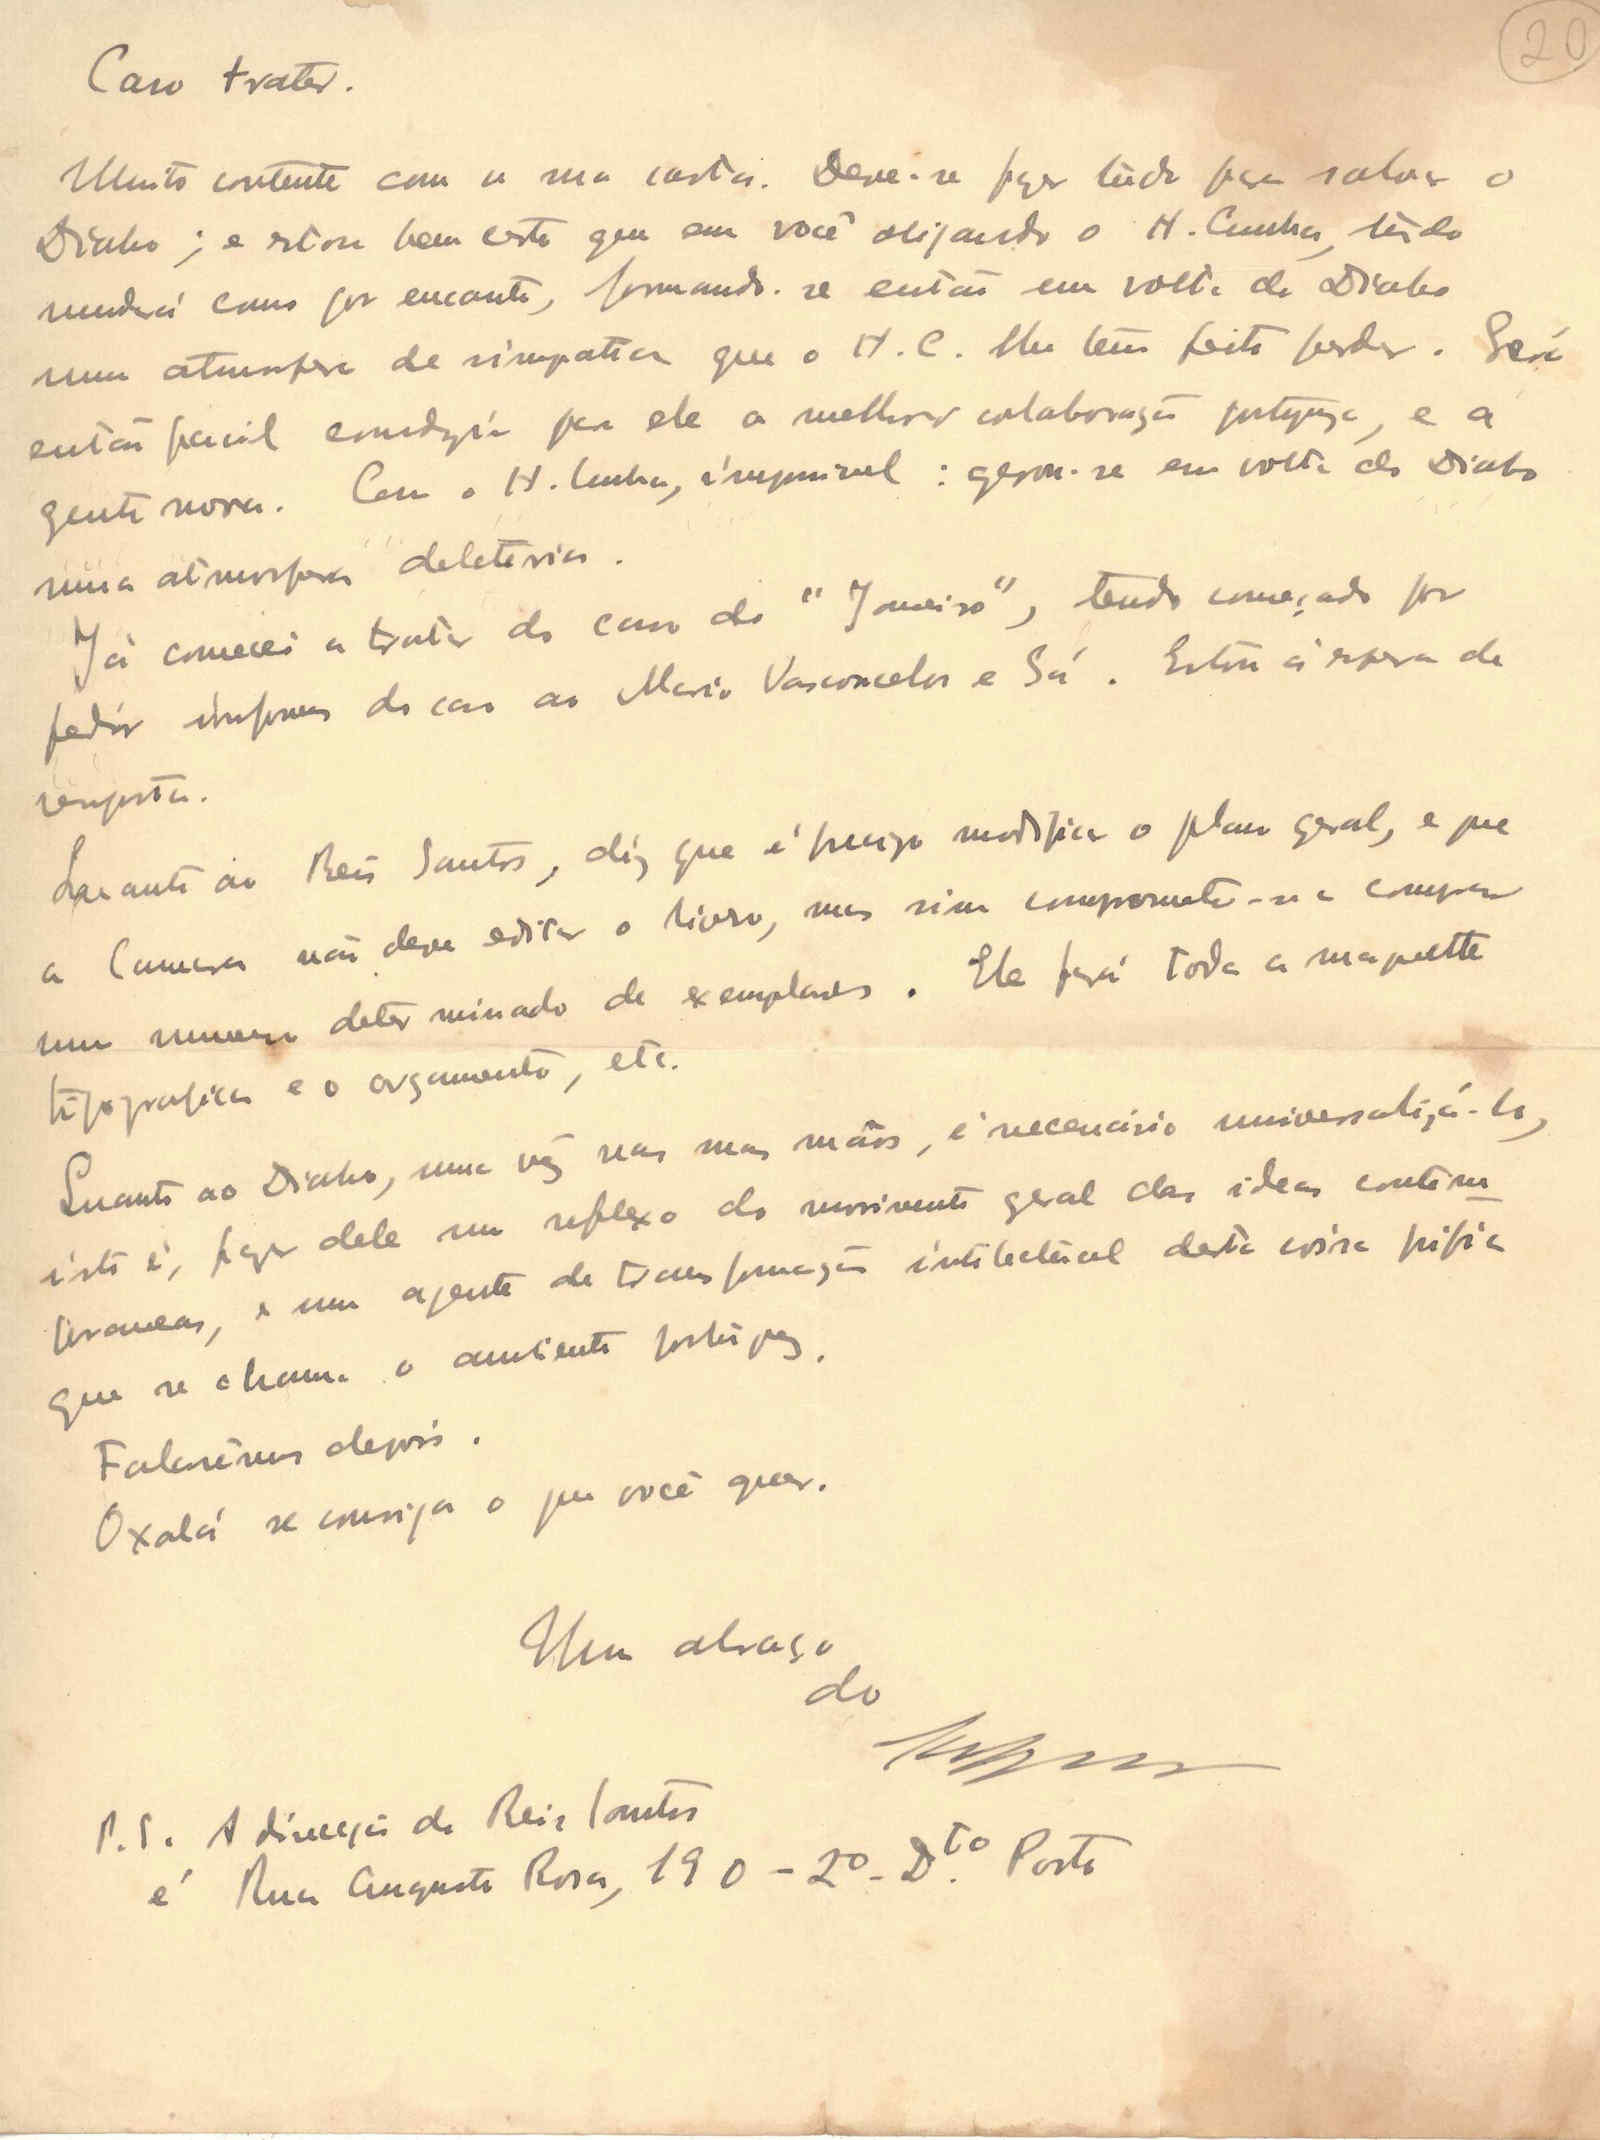 20
Caro frater.
Muito contente com a sua carta. Deve-se fazer tudo para salvar o
Diabo; e estou bem certo que em você alijando o H. Cunha, tudo
mudará como por encanto, formando-se então em volta do Diabo
uma atmosfera de simpatia que o H. C. lhe tem feito perder. Será
então facil conduzir para ele a melhor colaboração portugueza, e a
gente nova. Com o H. Cunha, impossivel: gerou-se em volta do Diabo
uma atmosfera deleteria.
Já comecei a tratar do caso do "Janeiro", tendo começado por
pedir informes do caso ao Mario Vasconcelos e Sá. Estou á espera de
resposta.
Quanto ao Reis Santos, diz que é preciso modificar o plano geral, e que
a Camara não deve editar o livro, mas sim comprometer-se a comprar
um numero determinado de exemplares. Ele fará toda a maquette
tipografica e o orçamento, etc.
Quanto ao Diabo, uma vez nas suas mãos, é necessário universalizá-lo,
isto é, fazer dele um reflexo do movimento geral das ideas contem
poraneas, e um agente de transformação intelectual desta coisa pifia
que se chama o ambiente portuguez.
Falaremos depois.
Oxalá se consiga o que você quer.
Um abraço
do
P.S. A direcção do Reis Santos
é Rua Augusto Rosa, 190 - 2º - Dto. Porto